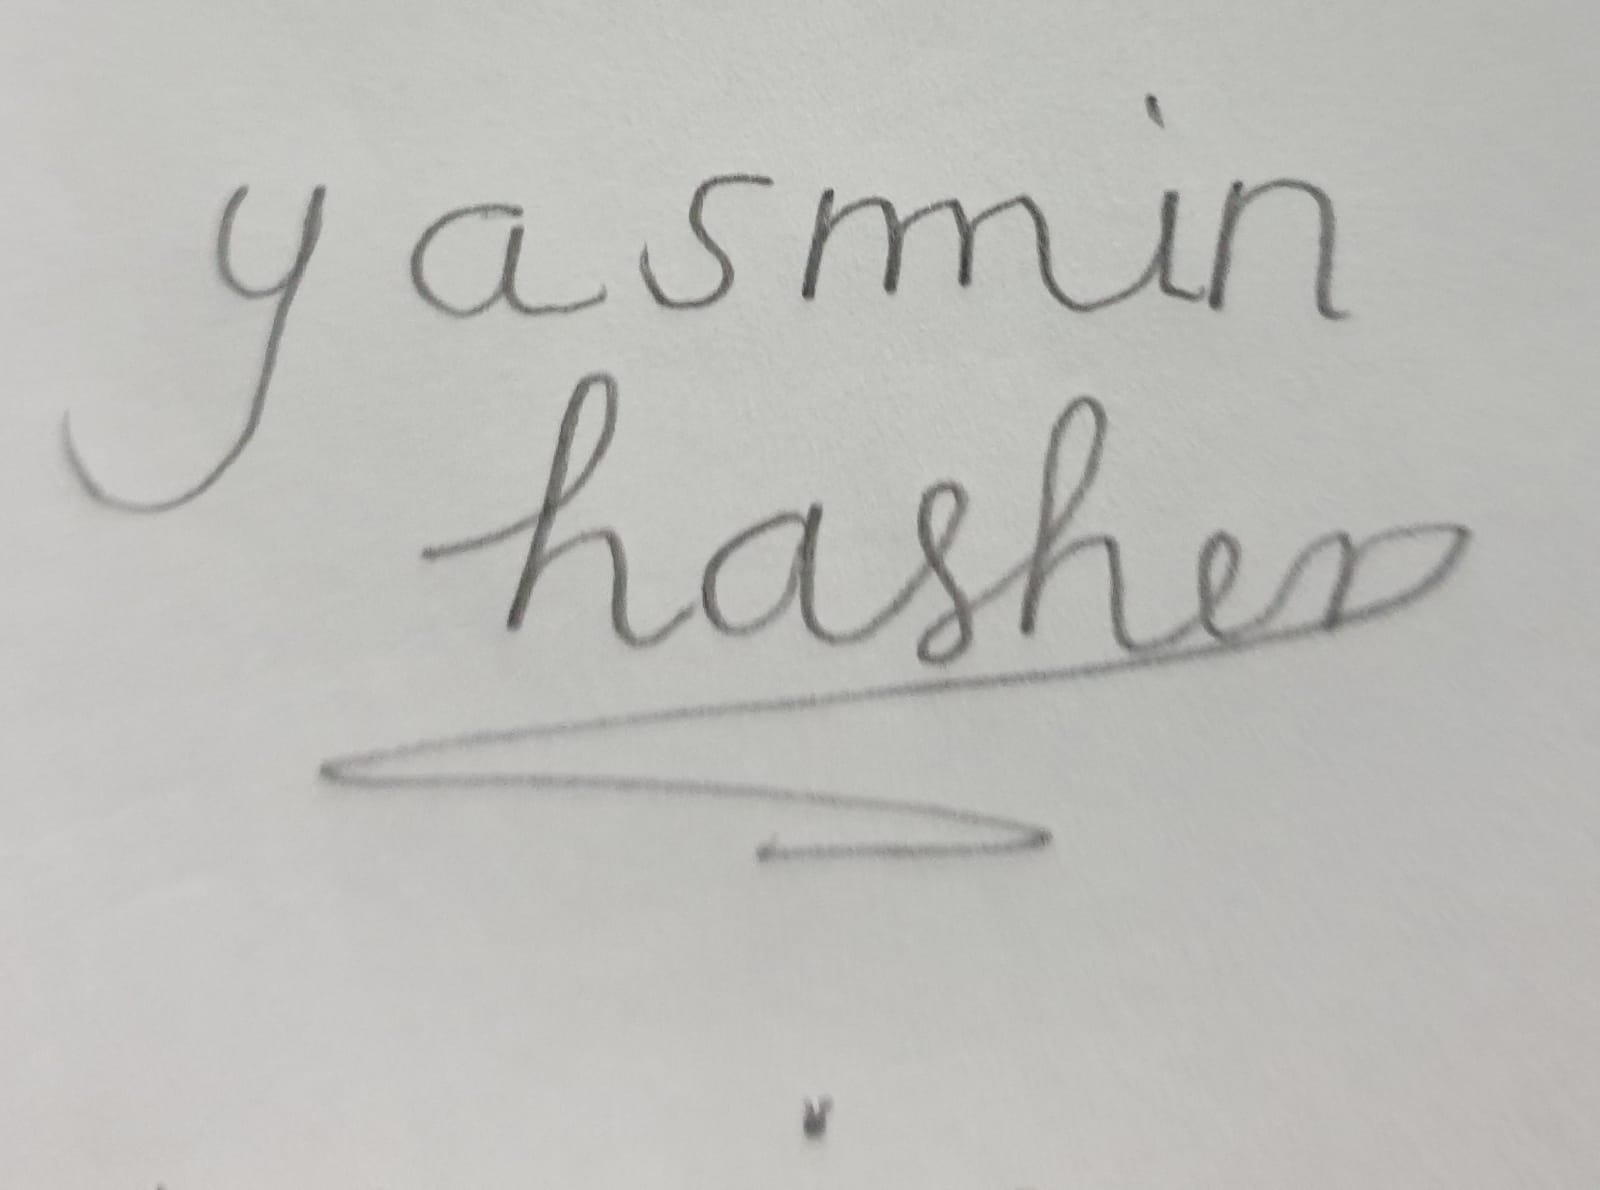 yasmin
hasher